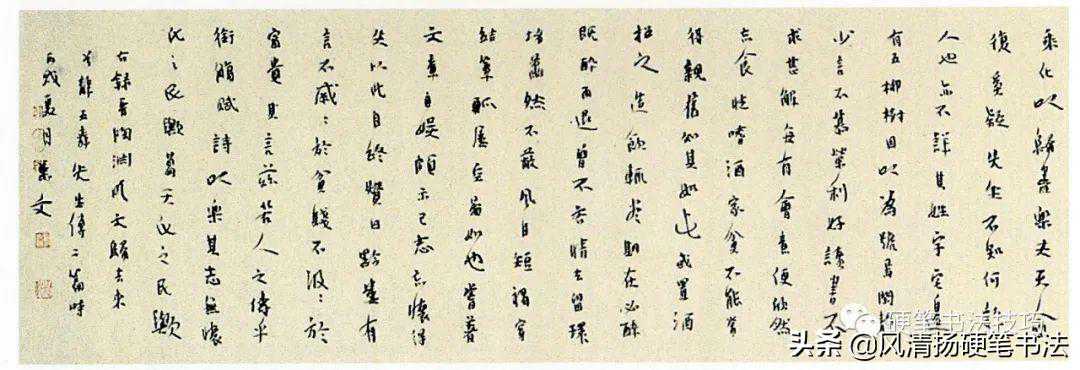 乘化以歸盡樂夫天命
復奚疑 先生不知何許
人也亦不詳其姓字宅邊
有五柳樹因以為號焉閑靖
少言不慕榮利好讀書不
求甚解每有會意便欣然
忘食性嗜酒家貧不能常
得親舊知其如此或置酒
招之造飲輒盡期在必醉
既醉而退曾不吝情去留環
堵蕭然不蔽風日短褐穿
結簞瓢屢空晏如也嘗著
文章自娛頗示己志忘懷得
失以此自終贊曰黔婁有
言不戚々於貧賤不汲々於
富貴其言茲若人之儔乎
銜觴賦詩以樂其志無懷
氏之民歟葛天氏之民歟
右錄晉陶淵明文歸去來
辭五柳先生傳二篇時
丙戌夏月
硬笔书法技巧
头条 @风清扬硬笔书法